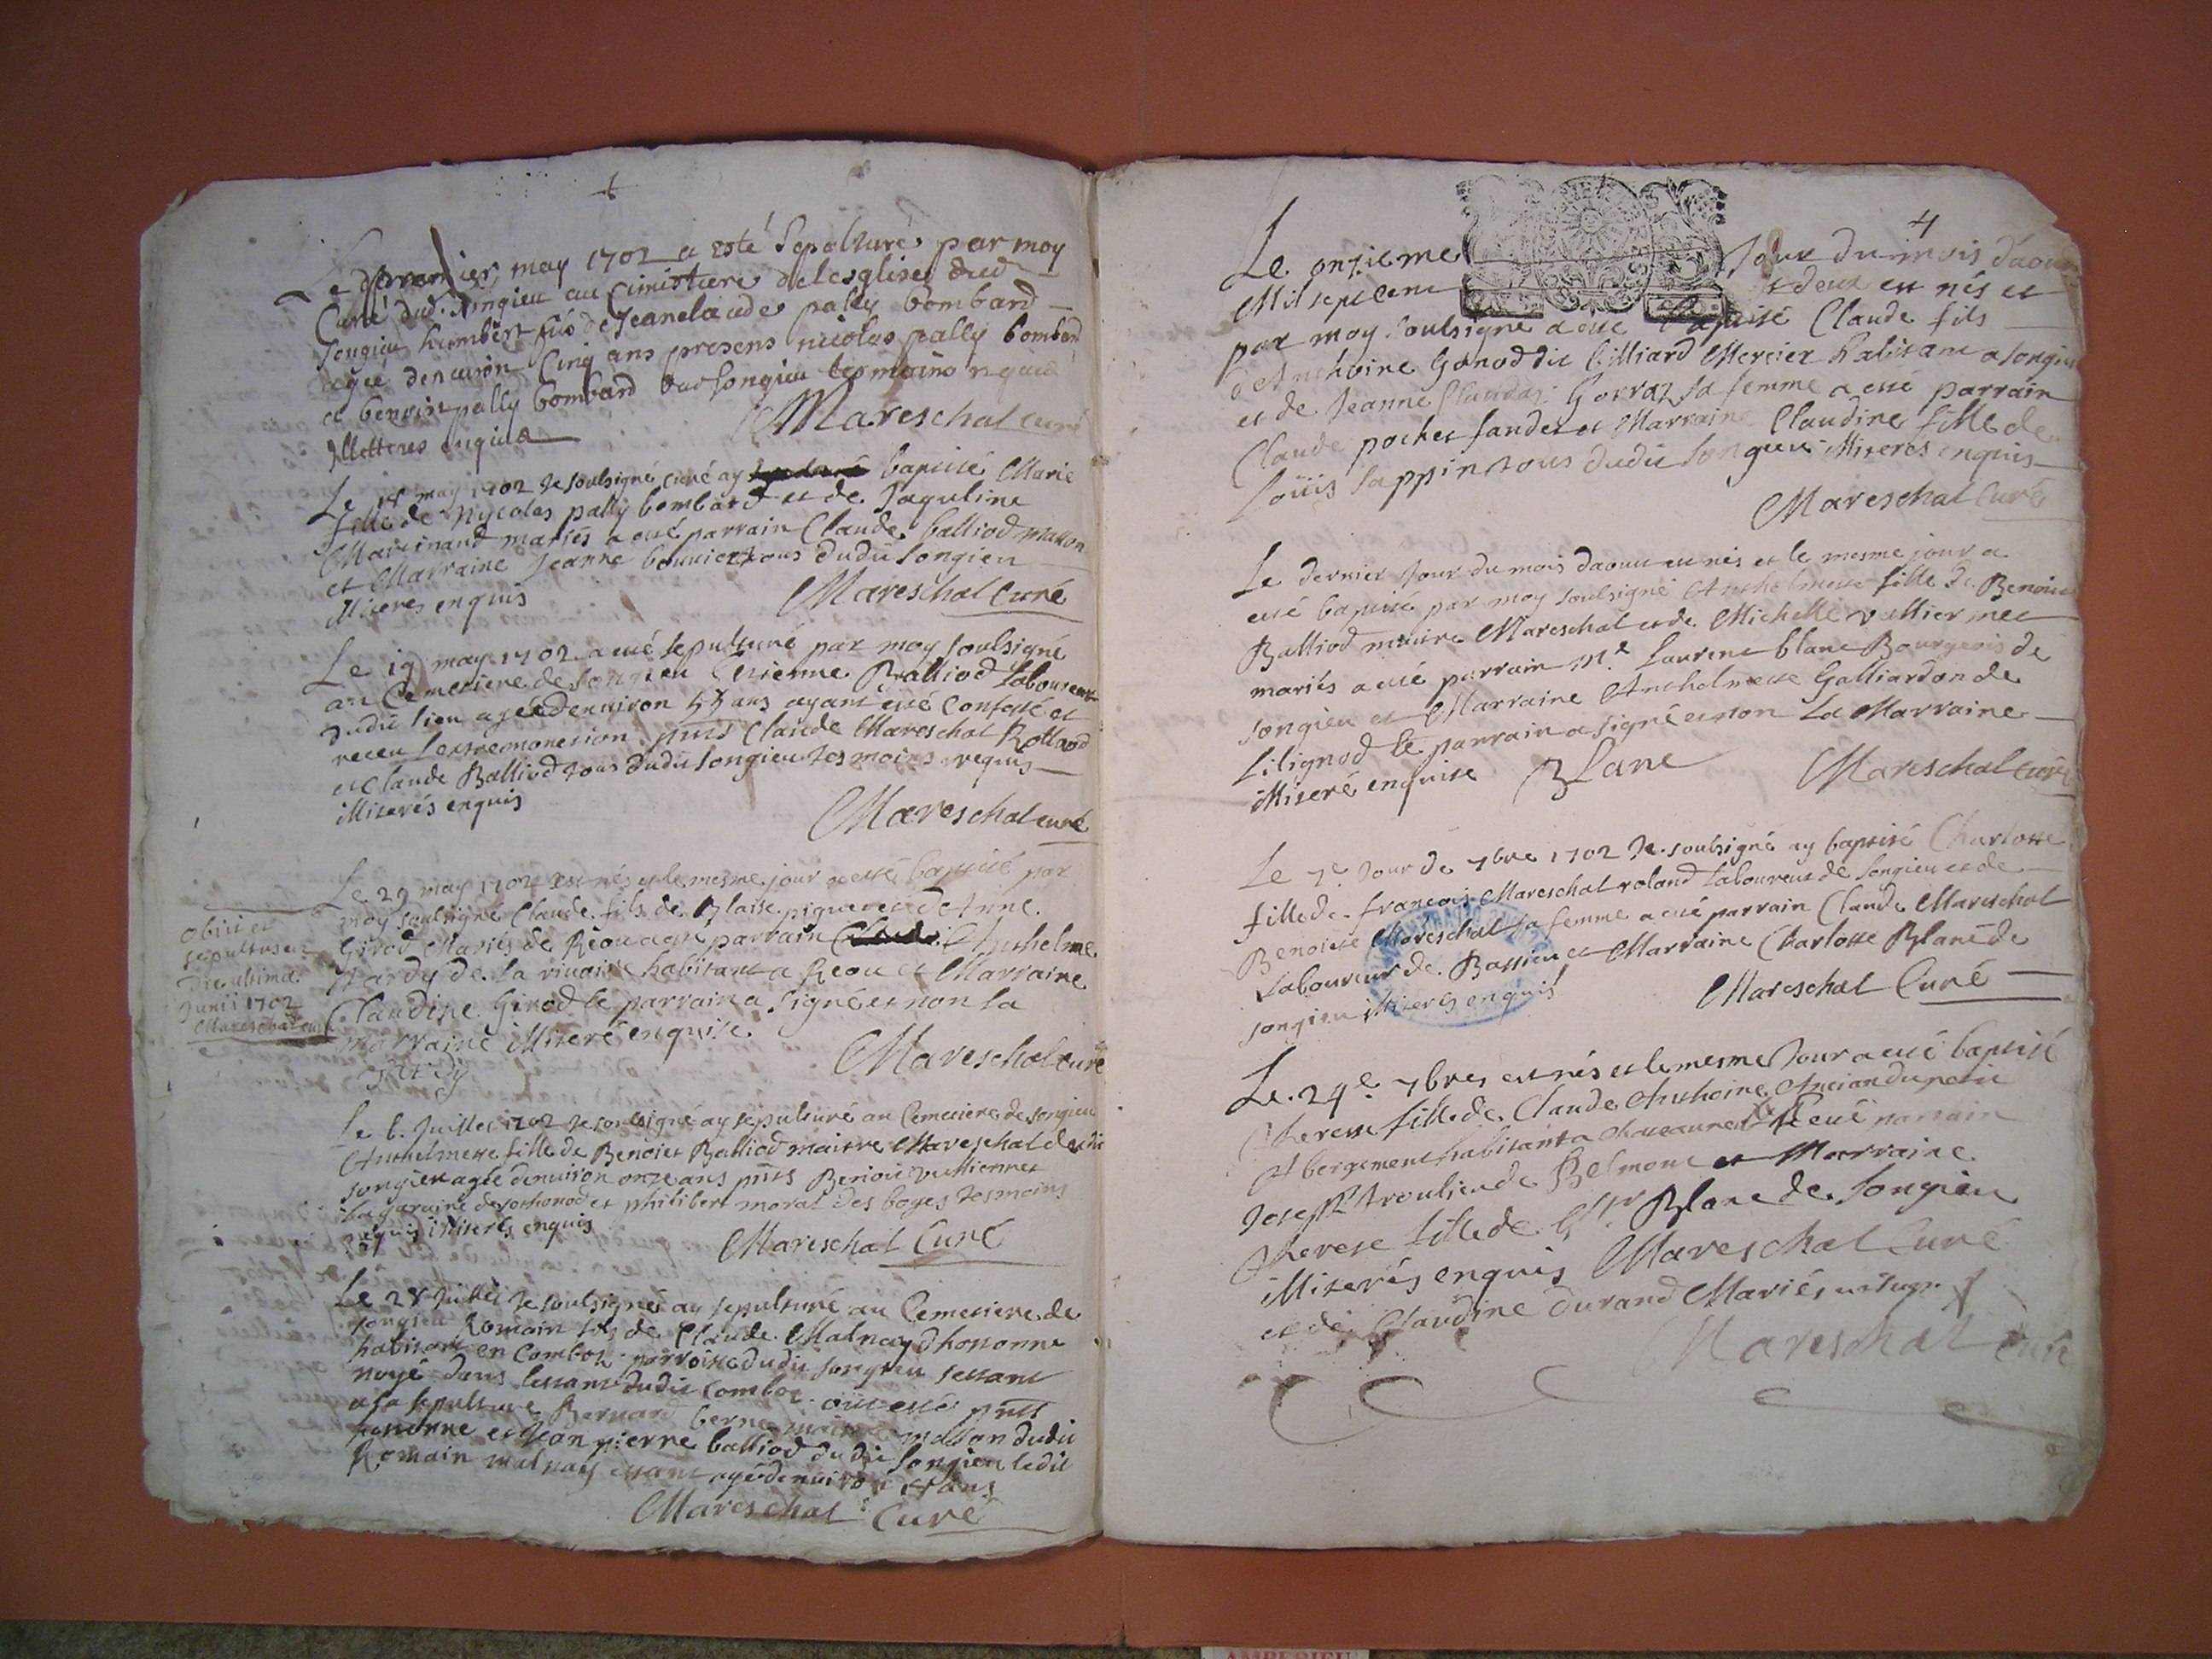 Le premier may 1702 a esté sepulturé par moy
Curé dud. Songieu au Cimistiere delesglise dud
Songieu humbert fils de Jeanclaude pally bombard
agée denuiron Cinq ans presens nicolas pally bombard
et benoist pally bombard dud songieu tesmoins requis
illetteres enquis
Mareschal curé
Le may 1702 Je soubsigné curé ay baptisé Marie
fille de Nycolas pally bombard et de Jaquline
Martinand mariés a esté parrain Claude balliod masson
et Marraine Jeanne bouvier tous dudit songieu
Iliteres enquis
Mareschal Curé
Le 19 may 1702 a esté sepulturé par moy soubsigné
au Cemetiere de songieu Estienne Balliod laboureur
dudit lieu agée denuiron ans ayant esté Confessé et
receu lextremonction pnts Claude Mareschal Rolland
et Claude Balliod tous dudit songieu tesmoins requis
Iliterés enquis
Mareschal curé
Le 29 may 1702 est nés et le mesme jour a esté baptisé par
moy soubsigné Claude fils de Blaise et de Anne
Girod Mariés de Reou a esté parrain Anthelme
Hardy de la riuaire habitant a Reou et Marraine
Claudine Girod le parrain a signé et non la
marraine Iliteré enquise
Hardy
Mareschal curé
obiit et
sepultus est
Die ultima
Junii 1702
Mareschal curé
Le 6. Juillet 1702 Je soubsigné ay sepulturé au Cemetiere de songieu
Anthelmette fille de Benoist Balliod maitre Mareschal dudit
songieu agée denuiron onze ans pnts Benoit vulliermet
de sothonod et philibert moral des boges tesmoins
requis Iliterés enquis
Mareschal Curé
Le 28 Juillet Je soubsigné ay sepulturé au Cemetiere de
songieu Romain fils de Claude Malnay dhossonne
habitant en Combot parroisse dudit songieu sestant
noyé dans lestang dudit Combot out esté pnts
a sa sepulture Bernard berne maitre masson dudit
et Jean pierre balliod dudit songieu ledit
Romain malnay estant agé denuiron ans
Mareschal Curé
4
Le onzieme Jour du mois daoust
Mil sept cent et deux est nés et
par moy soubsigné a esté baptisé Claude fils
d'Anthoine Gonod dit billiard Mercier habitant a songieu
et de Jeanne Claudaz Gorraz sa femme a esté parrain
Claude pochet fandet et Marraine Claudine fille de
Loüis sappin tous dudit songieu Iliteres enquis
Mareschal Curé
Le dernier Jour du mois daoust est nés et le mesme jour a
esté baptisé par moy soubsigné Anthelmette fille de Benoist
Balliod maitre Mareschal et de Michelle vulliermet
mariés a esté parrain M.e Laurent blanc Bourgeois de
songieu et Marraine Anthelmette Galliardon de
Lilignod le parrain a signé et non La Marraine
Iliteré enquise
Blanc
Mareschal curé
Le 7e Jour de 7bre 1702 Je soubsigné ay baptisé Charlotte
fille de françois Mareschal roland laboureur de songieu et de
Benoiste Mareschal sa femme a esté parrain Claude Mareschal
Laboureur de Bassieu et Marraine Charlotte Blanc de
songieu Iliterés enquis
Mareschal Curé
Le 24e 7bre est nés et le mesme Jour a esté baptisé
Therese fille de Claude Anthoine Ancian du petit
Abergement habitant a chateauneuf a esté parrain
Joseph trouliende Belmont et Marraine
Therese fille de Blanc de songieu
Iliterés enquis
Mareschal Curé
et de Claudine durand Mariés
Mareschal Curé